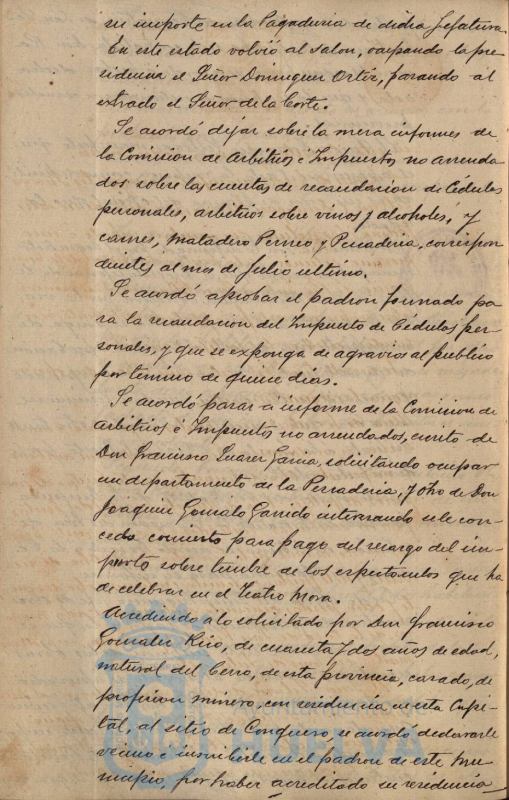 su importe en la Pagaduria de dicha Jefatura.
En este estado volvió al salon, ocupando la pre-
sidencia el Señor Dominguez Ortiz, pasando al
estrado el Señor de la Corte.
Se acordó dejar sobre la mesa informes de
la Comision de Arbitrios é Impuestos no arrenda-
dos sobre las cuentas de recaudacion de Cédulas
personales, arbitrios sobre vinos y alcoholes, y
carnes, Matadero Perneo y Pescaderia, correspon-
dientes al mes de Julio ultimo.
Se acordó aprobar el padron formado pa-
ra la recaudacion del Impuesto de Cédulas per-
sonales, y que se exponga de agravios al publico
por termino de quince dias.
Se acordó pasar á informe de la Comision de
Arbitrios é Impuestos no arrendados, escrito de
Don Francisco Suarez Garcia, solicitando ocupar
un departamento de la Pescaderia, y otro de Don
Joaquin Gonzalo Garrido interesando se le con-
ceda concierto para pago del recargo del im-
puesto sobre timbre de los espectaculos que ha
de celebrar en el Teatro Mora.
Accediendo á lo solicitado por Don Francisco
Gonzalez Rico, de cuarenta y dos años de edad,
natural del Cerro, de esta provincia, casado, de
profesion minero, con residencia en esta Capi-
tal, al sitio de Conquero, se acordó declararle
vecino é inscribirle en el padron de este Mu-
nicipio, por haber acreditado su residencia